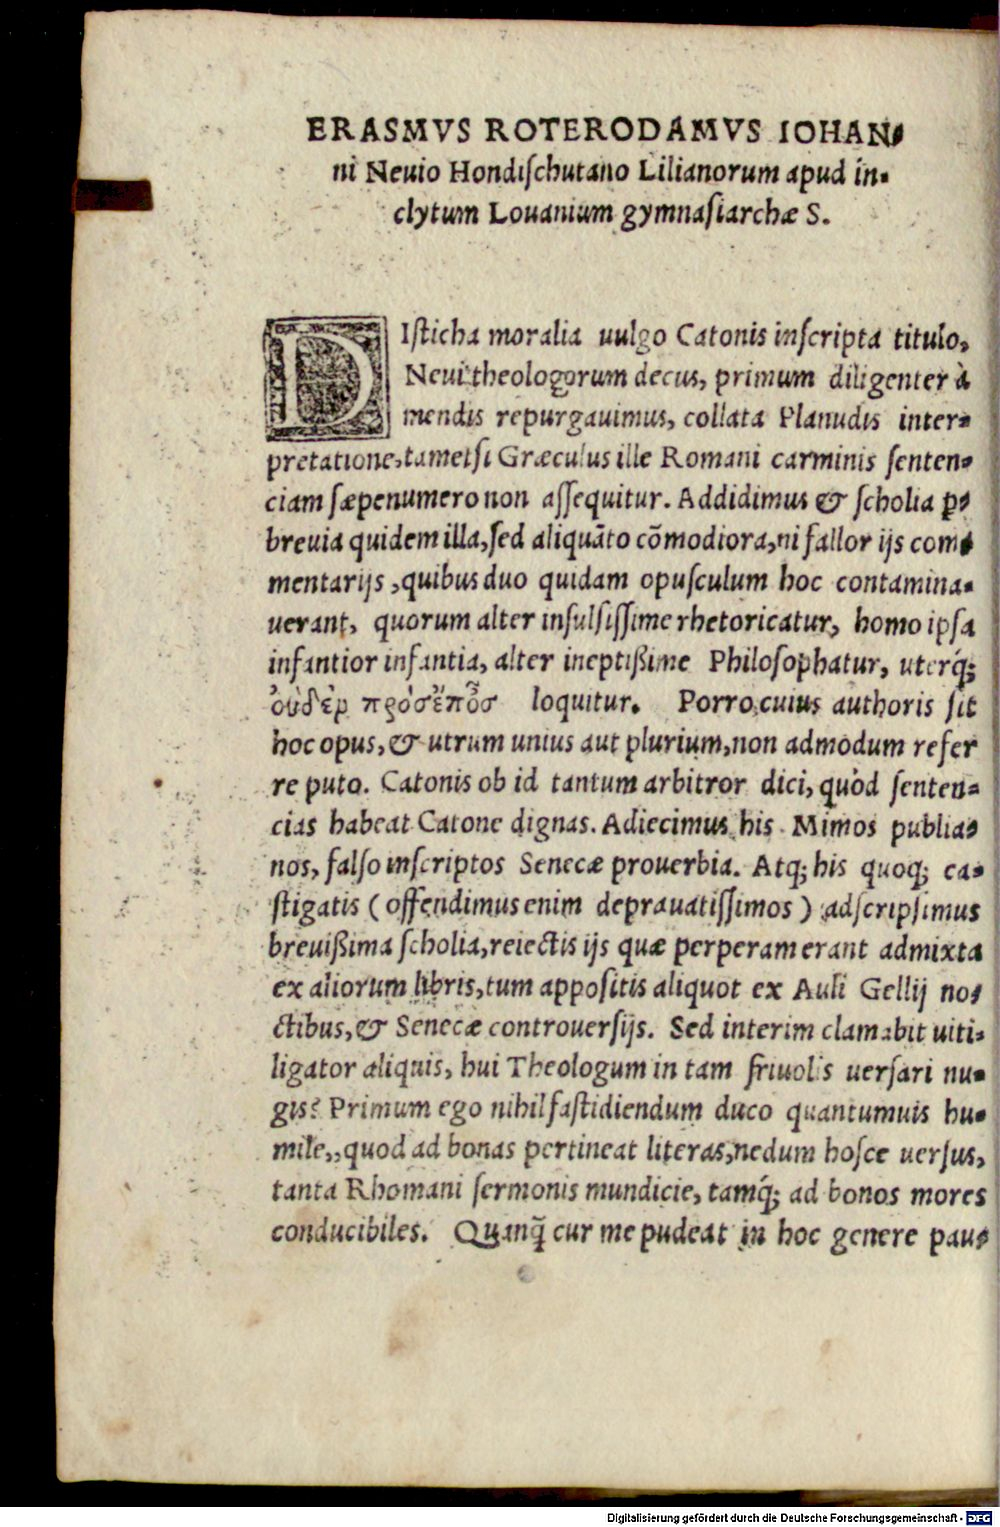 ERASMVS ROTERODAMVS IOHAN-
ni Neuio Hondiſchutano Lilianorum apud in-
clytum Louanium gymnaſiarchæ S.
DIſticha moralia uulgo Catonis inſcripta titulo,
Neui theologorum decus, primum diligenter à
mendis repurgauimus, collata Planudis inter-
pretatione, tametſi Græculus ille Romani carminis ſenten-
ciam ſæpenumero non aſſequitur. Addidimus & ſcholia ꝑ-
breuia quidem illa, ſed aliquãto cõmodiora, ni fallor ijs com-
mentarijs, quibus duo quidam opuſculum hoc contamina-
uerant, quorum alter inſulſiſſime rhetoricatur, homo ipſa
infantior infantia, alter ineptißime Philoſophatur, uterq́;
οὐδὲν πρὸσ ἔπος loquitur. Porro cuius authoris ſit
hoc opus, & utrum unius aut plurium, non admodum refer
re puto. Catonis ob id tantum arbitror dici, quòd ſenten-
cias habeat Catone dignas. Adiecimus his Mimos publia-
nos, falſo inſcriptos Senecæ prouerbia. Atq; his quoq; ca-
ſtigatis (offendimus enim deprauatiſſimos) adſcripſimus
breuißima ſcholia, reiectis ijs quæ perperam erant admixta
ex aliorum libris, tum appoſitis aliquot ex Auli Gellij no-
ctibus, & Senecæ controuerſijs. Sed interim clamabit uiti-
ligator aliquis, hui Theologum in tam friuolis uerſari nu-
gis? Primum ego nihil faſtidiendum duco quantumuis hu-
mile,, quod ad bonas pertineat literas, nedum hoſce uerſus,
tanta Rhomani ſermonis mundicie, tamq́; ad bonos mores
conducibiles. Quanq̃ cur me pudeat in hoc genere pau-
Digitalisierung gefördert durch die Deutsche Forschungsgemeinschaft - DFG